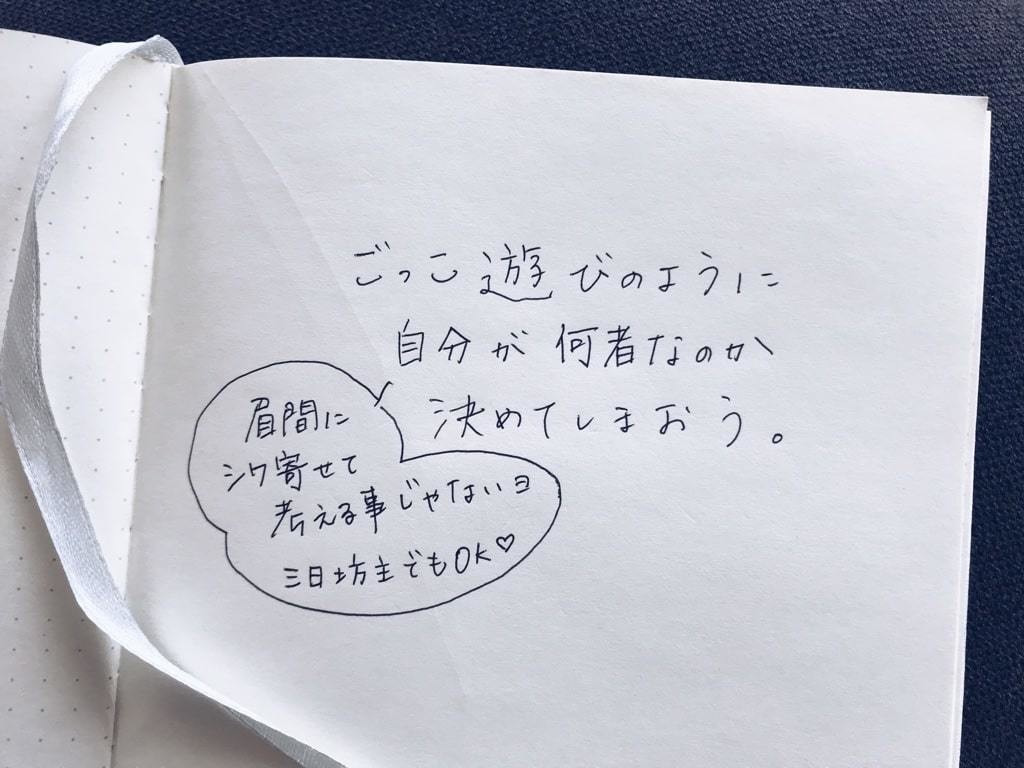 ごっこ遊びのように
自分が何者なのか
決めてしまおう。
眉間に
シワ寄せて
考える事じゃないヨ
三日坊主でもOK♡